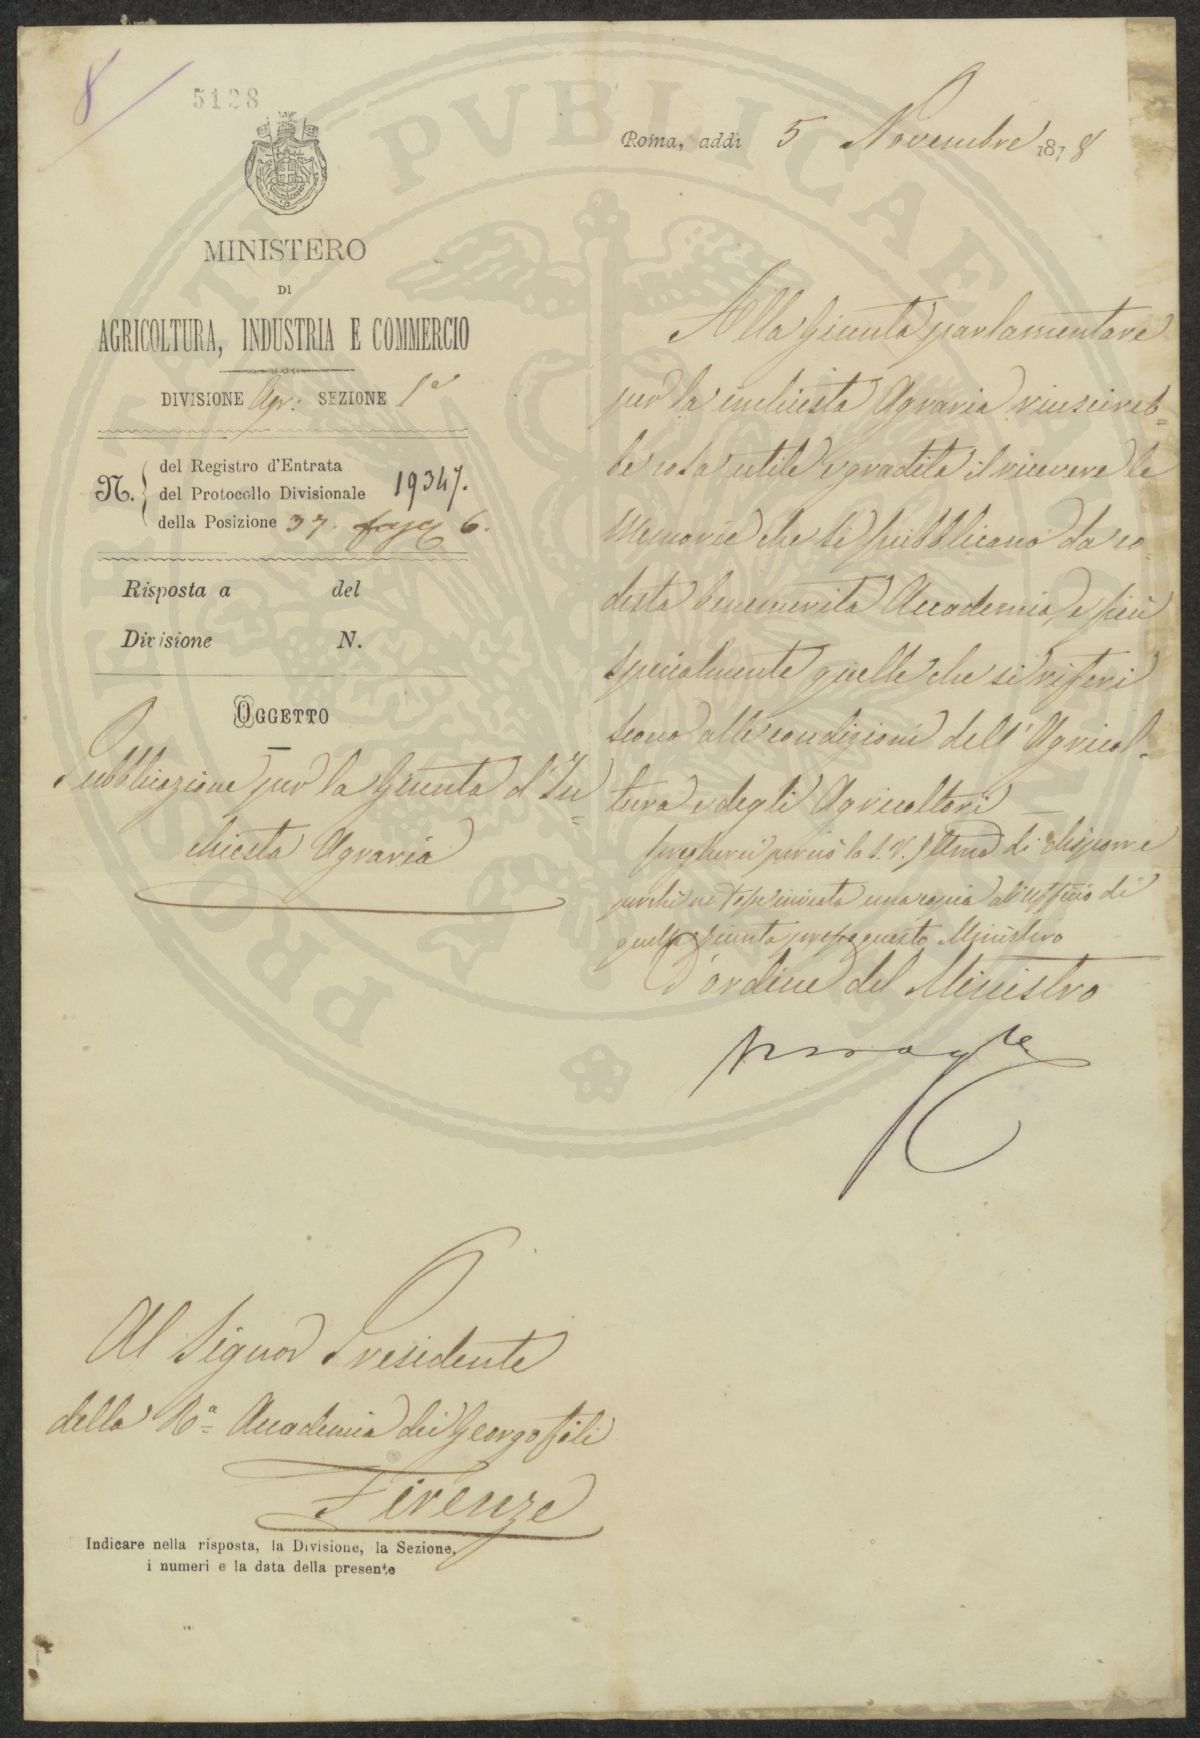 8
5128
Roma, addì 5 Novembre 1878
MINISTERO
DI
AGRICOLTURA, INDUSTRIA E COMMERCIO
DIVISIONE Agr: SEZIONE 1a
N. del Registro d'Entrata
del Protocollo Divisionale 19347.
della Posizione 37. fasc 6.
Risposta a del
Divisione N.
OGGETTO
Pubblicazione per la Giunta d'In=
chiesta Agraria
Alla Giunta parlamentare
per la inchiesta Agraria riuscireb=
be cosa utile e gradita il ricevere le
Memorie che si pubblicano da co=
desta benemerita Accademia e più
specialmente quelle che si riferi
scono alle condizioni dell'Agricol=
tura e degli Agricoltori
pregherei perciò la S. V. Illma di disporre
perchè ne inviata una copia all'ufficio di
quella Giunta presso questo Ministero
D'ordine del Ministro
Al Signor Presidente
della Ra= Accademia dei Georgofili
Firenze
Indicare nella risposta, la Divisione, la Sezione,
i numeri e la data della presente
PROSPERITATI PVBLICAE